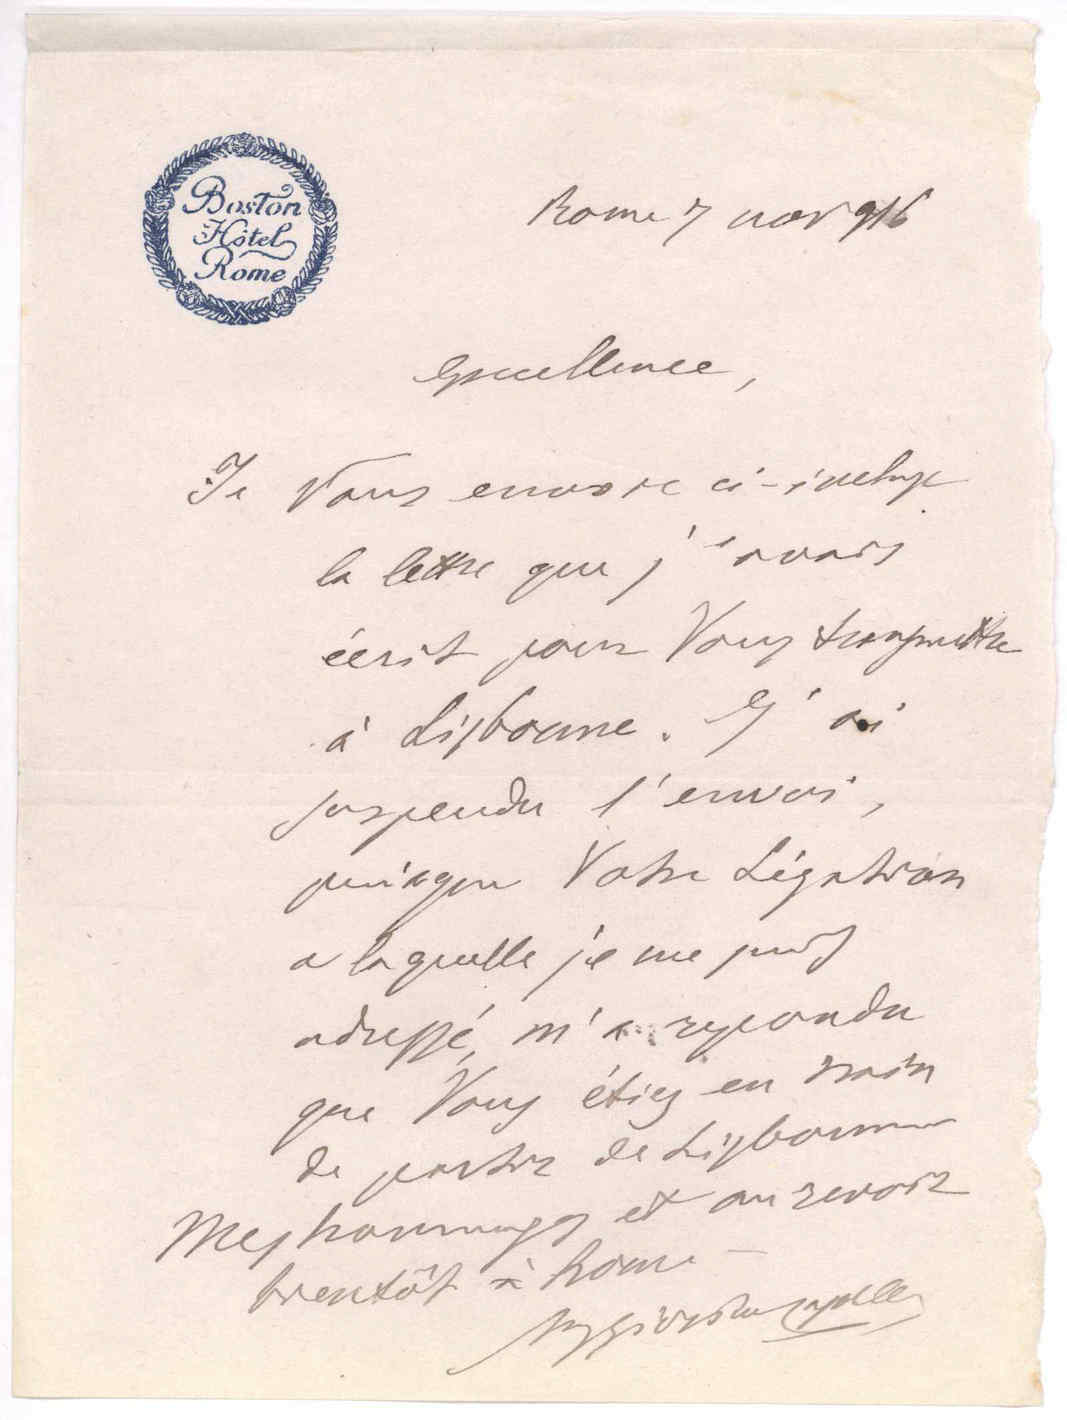 Boston
Hôtel
Rome
Rome 7 nov 916
Excellence,
Je Vous envoie ci-incluse
la lettre que j'avais
écrit pour Vous transmettre
à Lisbonne. J'ai
suspendu l'envoi,
puisque Votre Légation
a laquelle je me suis
adressé, m'a repondu
que Vous étiez en train
de partir de Lisbonne
Mes hommages et au revoir
bientôt à Rome